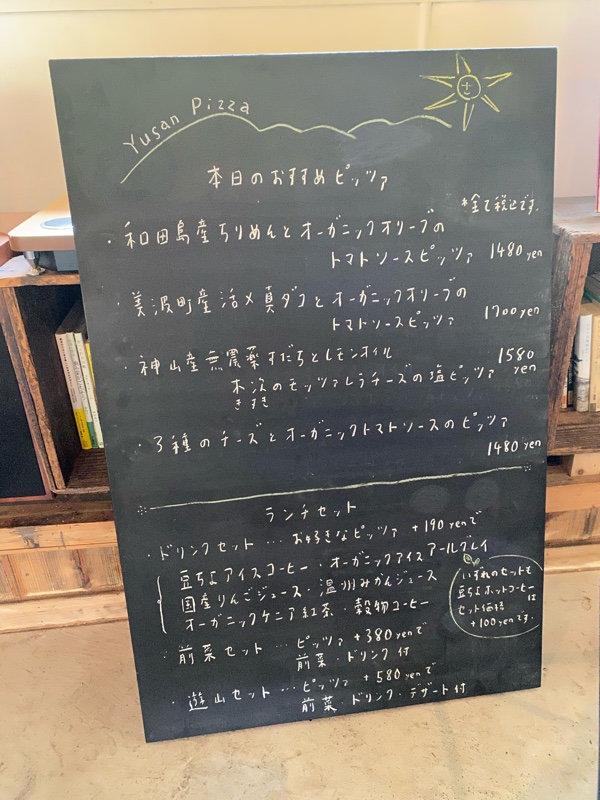 Yusan Pizza
本日のおすすめピッツァ
*全て税込です。
・和田島産ちりめんとオーガニックオリーブの
トマトソースピッツァ 1480 yen
・美波町産活〆真ダコとオーガニックオリーブの
トマトソースピッツァ 1700 yen
・神山産無農薬すだちとレモンオイル
木次のモッツァレラチーズの塩ピッツァ 1580 yen
きすき
・3種のチーズとオーガニックトマトソースのピッツァ
1480 yen
ランチセット
・ドリンクセット…お好きなピッツァ +190 yenで
豆ちよアイスコーヒー・オーガニックアイスアールグレイ
国産りんごジュース・温州みかんジュース
オーガニックケニア紅茶・穀物コーヒー
いずれのセットも
豆ちよホットコーヒーは
セット価格
+100 yenです。
・前菜セット…ピッツァ +380 yenで
前菜・ドリンク付
・遊山セット…ピッツァ +580 yenで
前菜・ドリンク・デザート付